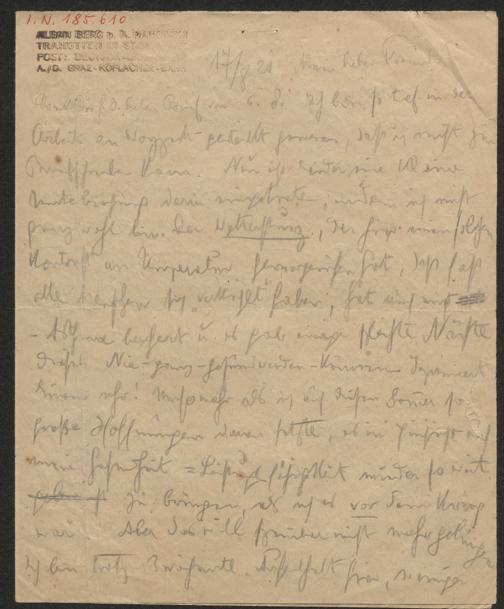 I.N. 185.610
ALBAN BERG p. A. NAHOWSKI
TRAHÜTTEN IN STEIERM
POST: DEUTSCH-LANDSBERG
A./D. GRAZ-KÖFLACHER-BAHN
17/8 21 Mein lieber
Dank für d. lieben Brief vom 6. d. Ich bin so tief in der
Arbeit am Wozzeck gesteckt gewesen, daß ich nicht zum
Briefschreiben kam. Nun ist leider eine kleine
Unterbrechung darin eingetreten, indem ich nicht
ganz wohl bin. Der Wettersturz, der hier einen solchen
an Temperatur hervorgerufen hat, daß fast
alle sich "verkühlt" haben, hat auch mich
- Asthma beschert u. es gab einige schlechte Nächte
Dieses Nie-ganz-gesund-werden-Können deprimiert
einen sehr! Umsomehr als ich auf diesen Sommer so
große Hoffnungen daran setzte, es in Hinsicht auf
meine Gesundheit = Leistungsfähigkeit wieder so weit
zu bringen, als ich es vor dem Krieg
war Aber das will scheinbar nicht mehr gelingen
Ich bin trotz Aufenthalt hier, weniger